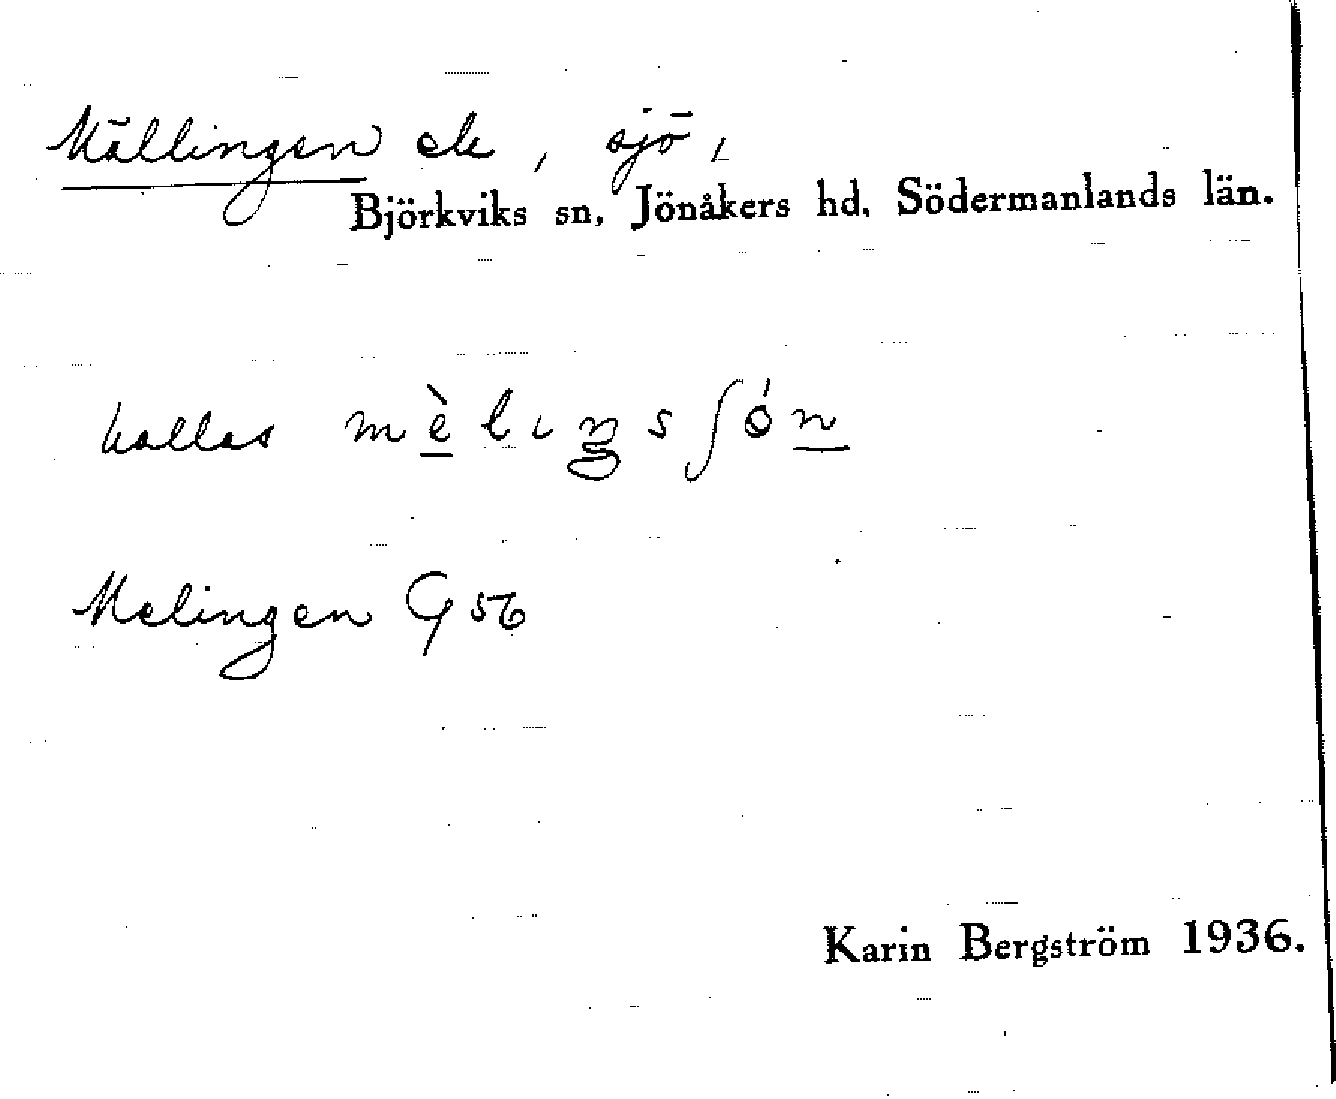 Mällingen ek, sjö,
Björkviks sn, Jönåkers hd, Södermanlands län.
kallas mèlɩŋsʃón
Melingen G 56
Karin Bergström 1936.